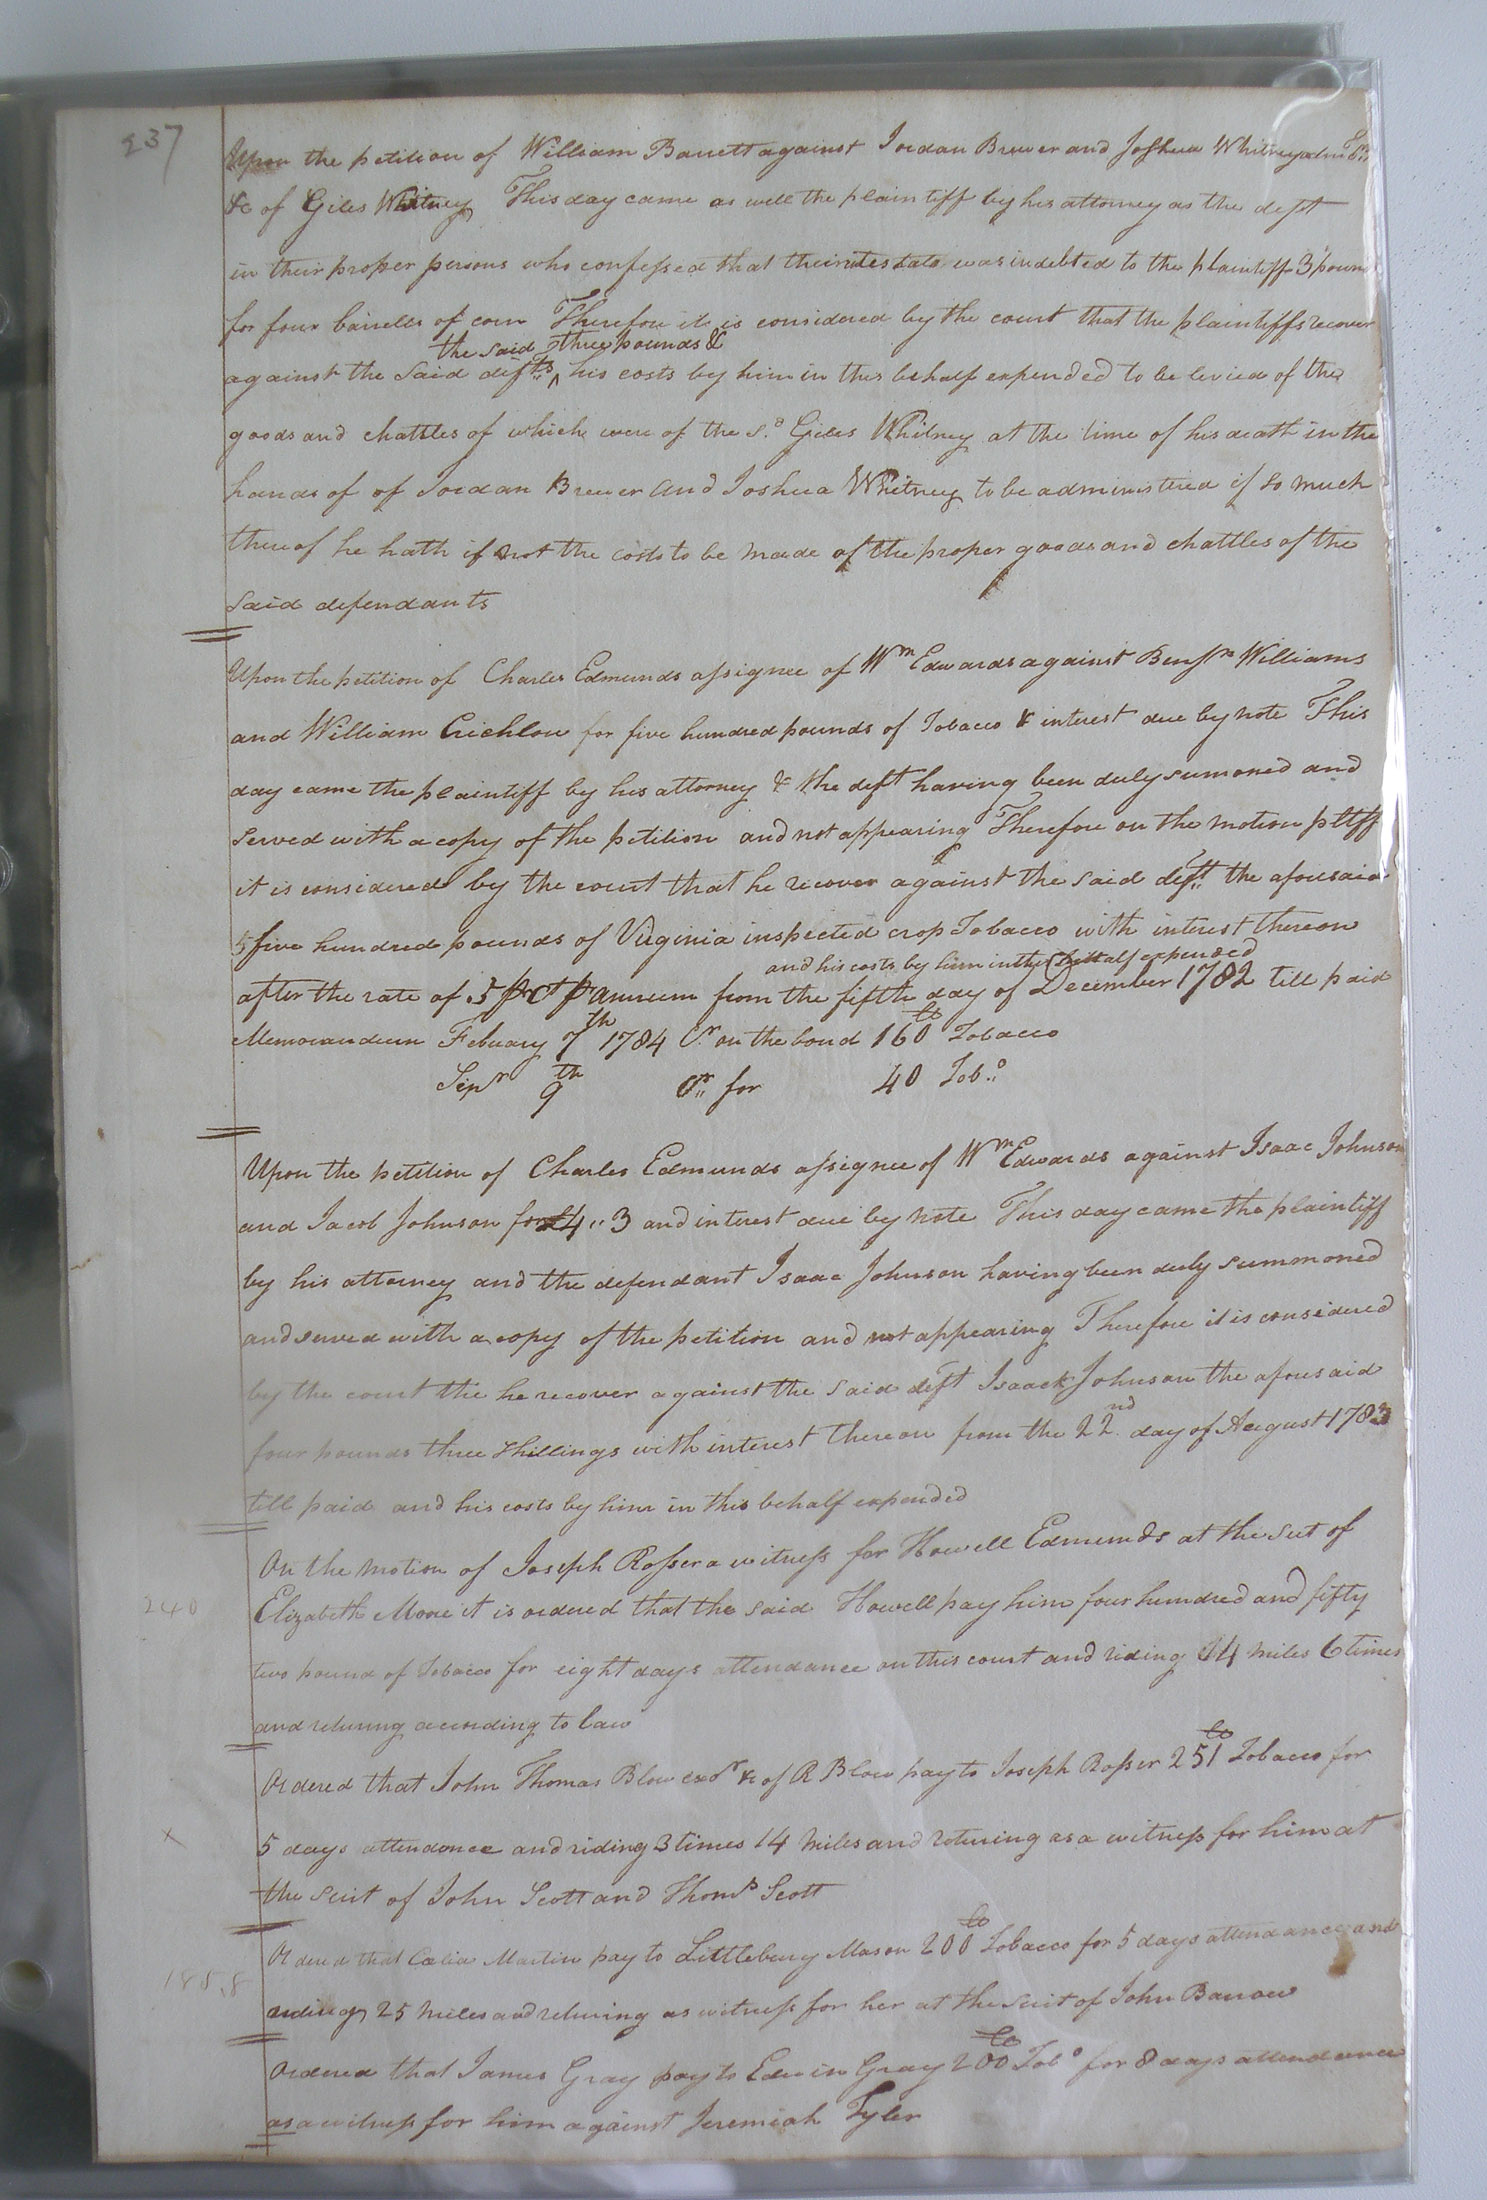 237
Upon the petition of William Barrett against Jordan Brewer and Joshua Whitney
&c of Giles Whitney This day came as well the plaintiff by his attorney as the deft
in their proper persons who confessed that their intestate was indebted to the plaintiff 3 poun
for four barrells of corn Therefore it is considered by the court that the plaintiffs recover
the said three pounds &
against the said defts his costs by him in this behalf expended to be levied of the
goods and chattles of which were of the sd Giles Whitney at the time of his death in the
hands of of Jordan Brewer and Joshua Whitney to be administered if so much
thereof he hath if not the costs to be made of the proper goods and chattles of the
said defendants
Upon the petition of Charles Edmunds assignee of Wm Edwards against Benjn Williams
and William Crichlow for five hundred pounds of Tobacco & interest due by note This
day came the plaintiff by his attorney & the deft having been duly sumoned and
served with a copy of the petition and not appearing Therefore on the motion pltff
it is considered by the court that he recover against the said deft the aforesaid
five hundred pounds of Virginia inspected crop Tobacco with interest thereon
and his costs by him in this behalf expended
after the rate of 5 Pr Ct P annum from the fifth day of December 1782 till paid
Memorandum Febuary 7th 1784 Cr on the bond 160 lb Tobacco
Sepr 9th Cr for 40 Tobo
Upon the petition of Charles Edmunds assignee of Wm Edwards against Isaac Johnson
and Jacob Johnson for £4,,3 and interest due by note This day came the plaintiff
by his attorney and the defendant Isaac Johnson having been duly summoned
and served with a copy of the petition and not appearing Therefore it is considered
by the court the he recover against the said deft Isaack Johnson the aforesaid
four pounds three shillings with interest thereon from the 22nd day of August 1783
till paid and his costs by him in this behalf expended
On the motion of Joseph Rosser a witness for Howell Edmunds at the sut of
240
Elizabeth Moore it is ordered that the said Howell pay him four hundred and fifty
two pound of Tobacco for eight days attendance on this court and riding 14 miles 6 times
and returnng according to law
Ordered that John Thomas Blow exor &c of R Blow pay to Joseph Rosser 251 lb Tobacco for
x
5 days attendance and riding 3 times 14 miles and returning as a witness for him at
the suit of John Scott and Thoms Scott
Ordered that Celia Martin pay to Littlebury Mason 200 lb Tobacco for 5 days attendance and
185.8
riding 25 miles and returning as witness for her at the suit of John Barrow
Ordered that James Gray pay to Edwin Gray 200 lb Tobo for 8 days attendance
as a witness for him against Jeremiah Tyler